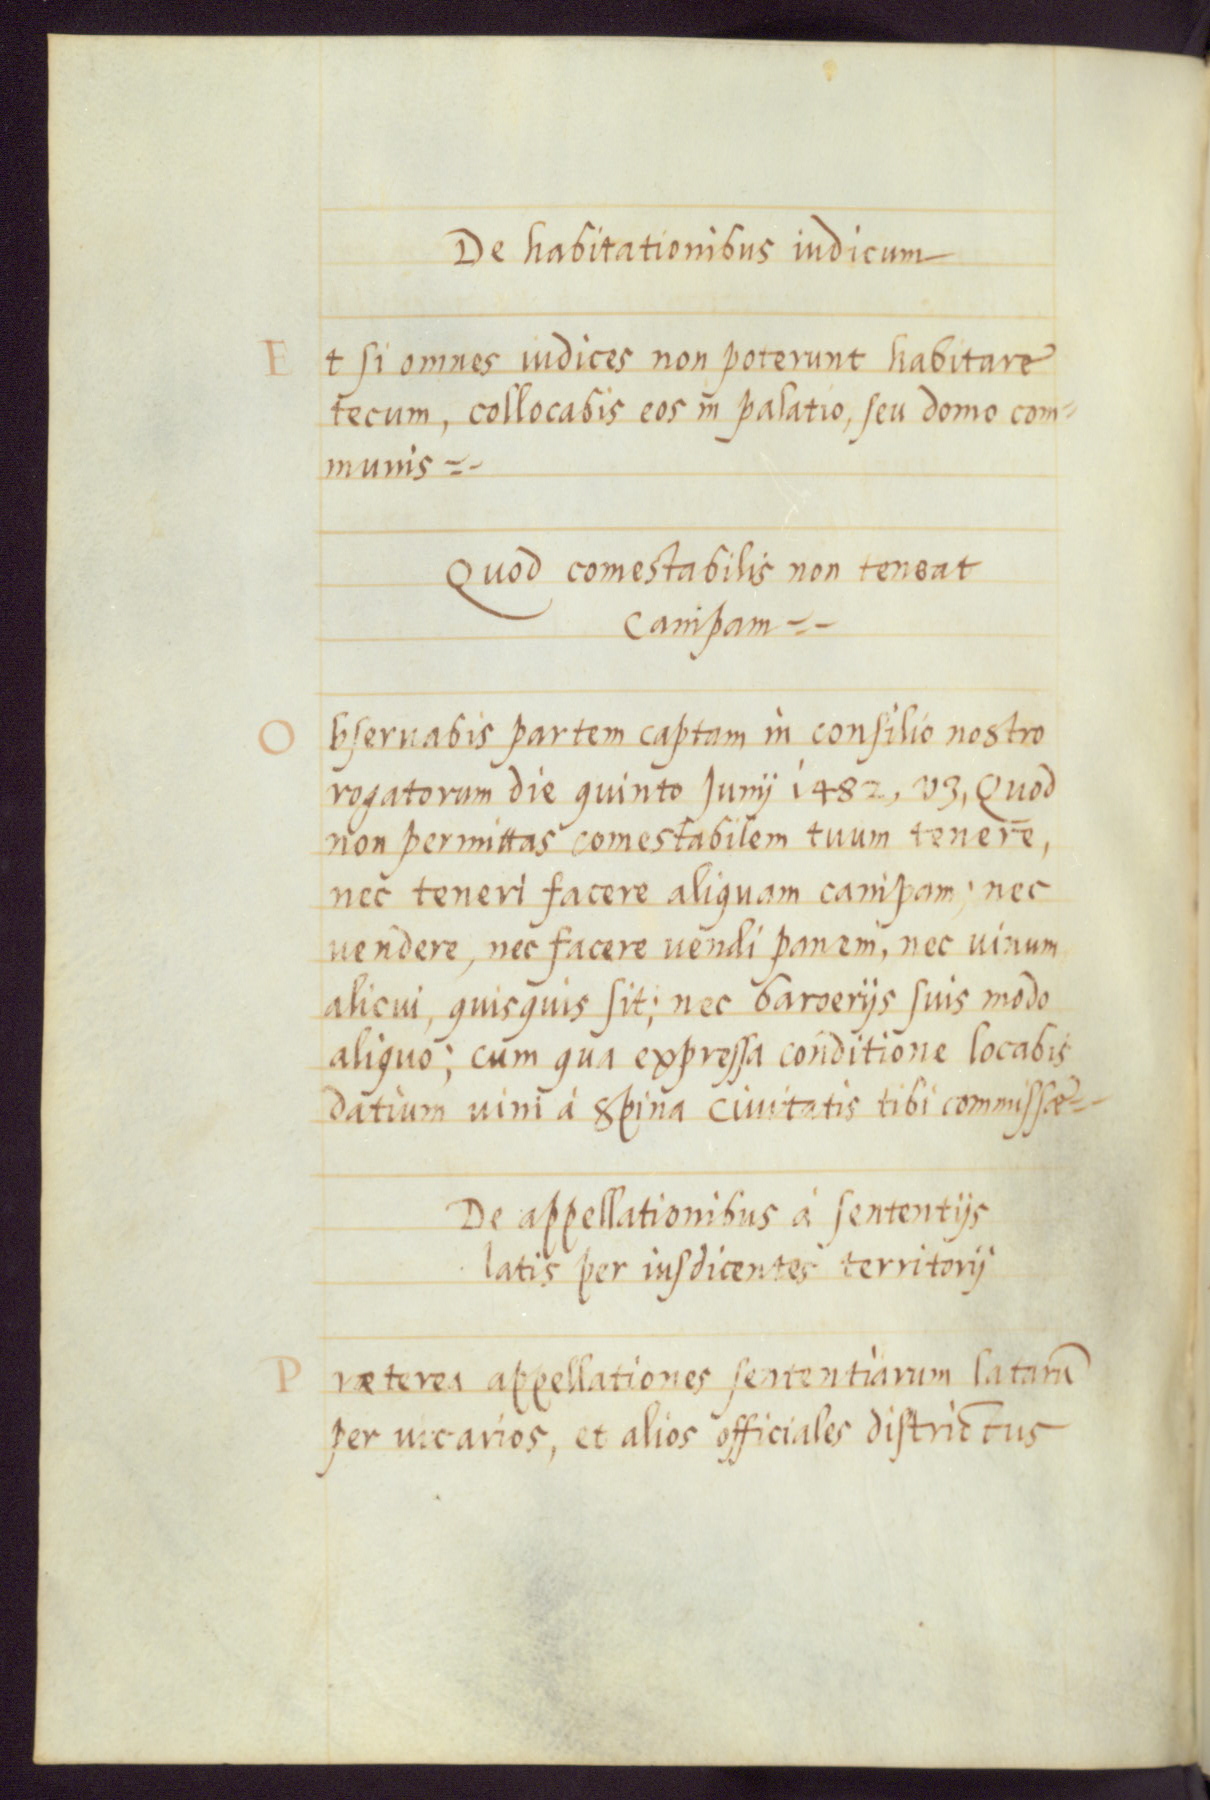 De habitationibus iudicum
Et si omnes iudices non poterunt habitare
tecum, collocabis eos in palatio, seu domo com=
munis =-
Quod comestabilis non teneat
canipam =-
Obseruabis partem captam in consilio nostro
rogatorum die quinto Junij 1482, vz, Quod
non permittas comestabilem tuum tenere,
nec teneri facere aliquam canipam; nec
uendere, nec facere uendi panem, nec uinum
alicui, quisquis sit; nec baroerijs suis modo
aliquo; cum qua expressa conditione locabis
datium uini à spina Ciuitatis tibi commissæ=-
De appellationibus à sententijs
latis per iusdicentes territorij
Præterea appellationes sententiarum latarū
per uicarios, et alios officiales districtus